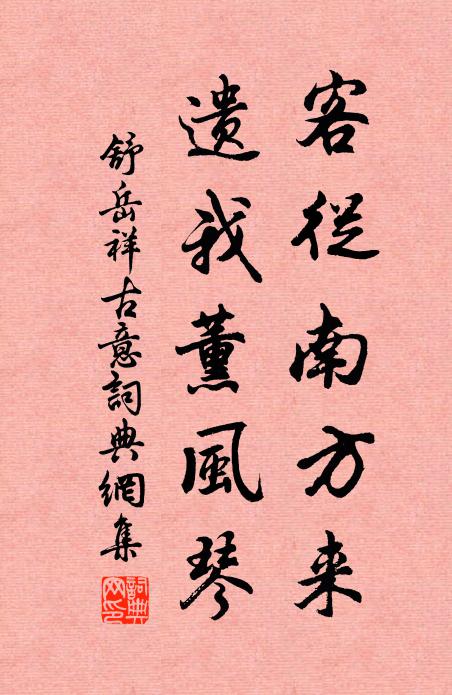 客從南方来
遺我薰風琴
舒岳祥古意詞典網集
詞典網印